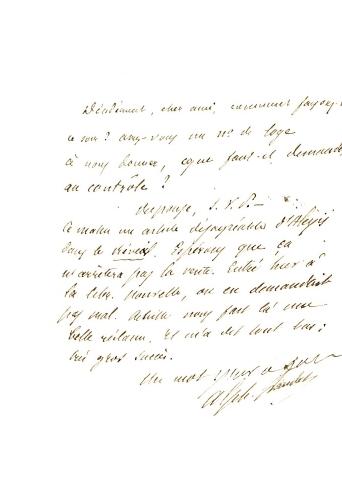 Décidément, cher ami, comment faisons-
ce soir? avez-vous un n° de loge
à nous donner, que faut-il demander
au contrôle?
Réponse, S. V. P. —
Ce matin un article désagréable d'Alexis
dans le Réveil. Espérons que ça
n'arrêtera pas la vente. Entré hier à
la Libr. nouvelle, on en demandait
pas mal. Achille nous fait là une
belle réclame. Et m'a dit tout bas:
très gros succès.
Un mot
Alph. Daudet